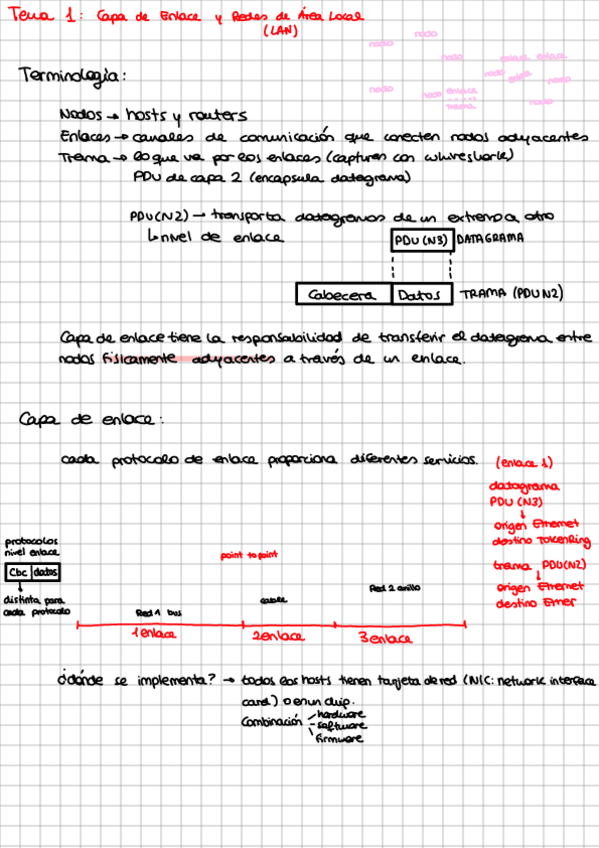 Tema 1: Capa de Enlace y Redes de Área Local
(LAN)
nodo
nodo
nodo
enlace enlace
nodo
enlace
nodo
nodo
nodo
enlace
trama
nodo
Terminología:
Nodos → hosts y routers
Enlaces → canales de comunicación que conecten nodos adyacentes
Trama → lo que va por los enlaces (capturan con whireshark)
PDU de capa 2 (encapsula datagrama)
PDU(N2) → transporta datagramas de un extremo a otro
↳ nivel de enlace
PDU (N3) DATAGRAMA
Cabecera Datos TRAMA (PDU N2)
Capa de enlace tiene la responsabilidad de transferir el datagrama entre
nodos físicamente adyacentes a través de un enlace.
Capa de enlace:
cada protocolo de enlace proporciona diferentes servicios.
(enlace 1)
datagrama
PDU (N3)
↓
origen Ethernet
destino TokenRing
trama PDU(N2)
↓
origen Ethernet
destino
protocolos
nivel enlace
Cbc datos
↓
distinta para
cada protocolo
point to point
Red 1 bus
cable
Red 2 anillo
1 enlace
2 enlace
3 enlace
¿dónde se implementa? → todos los hosts tienen tarjeta de red (NIC: network interface
card) o en un chip.
Combinación
hardware
software
firmware